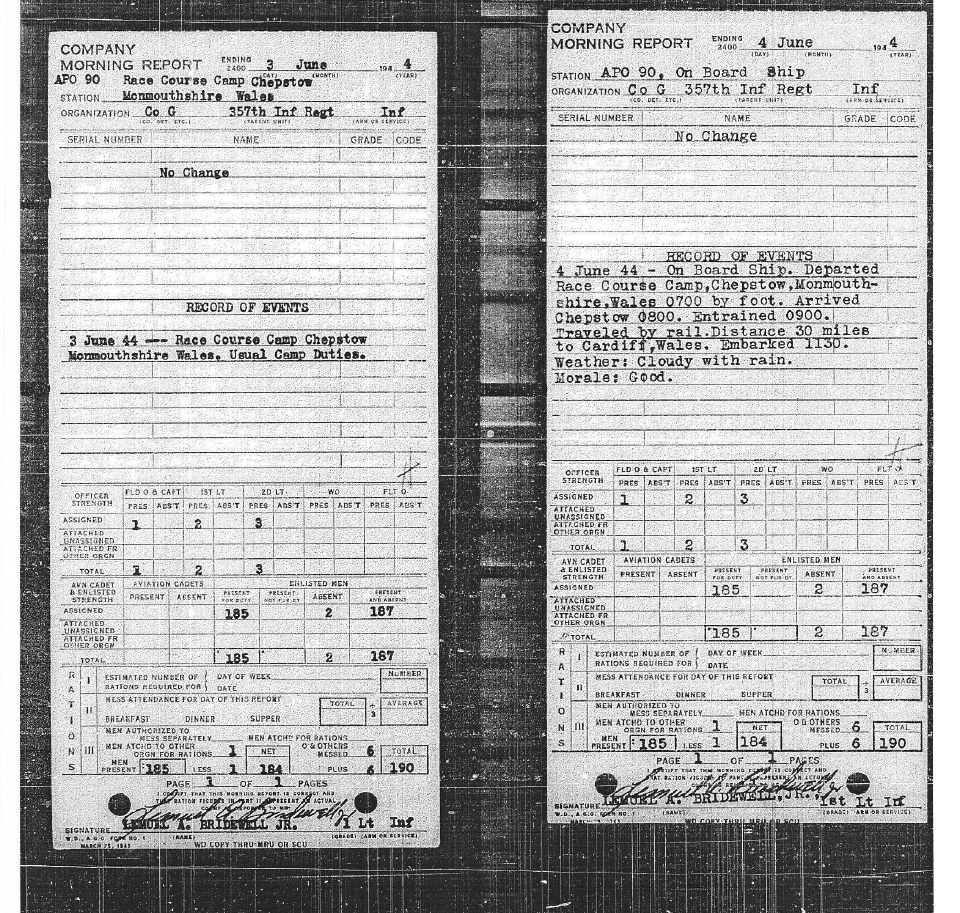 COMPANY
MORNING REPORT ENDING 2400 3 June 194 4
(DAY) (MONTH) (YEAR)
APO 90 Race Course Camp Chepstow
STATION Monmouthshire Wales
ORGANIZATION Co G 357th Inf Regt Inf
(CO. DET. ETC.) (PARENT UNIT) (ARM OR SERVICE)
SERIAL NUMBER NAME GRADE CODE
No Change
RECORD OF EVENTS
3 June 44 --- Race Course Camp Chepstow
Monmouthshire Wales. Usual Camp Duties.
OFFICER STRENGTH FLD O & CAPT 1ST LT 2D LT WO FLT O
PRES ABS'T PRES ABS'T PRES ABS'T PRES ABS'T PRES ABS'T
ASSIGNED 1 2 3
ATTACHED UNASSIGNED
ATTACHED FR OTHER ORGN
TOTAL 1 2 3
AVN CADET & ENLISTED STRENGTH AVIATION CADETS ENLISTED MEN
PRESENT ABSENT PRESENT FOR DUTY PRESENT NOT FOR DY ABSENT PRESENT AND ABSENT
ASSIGNED 185 2 187
ATTACHED UNASSIGNED
ATTACHED FR OTHER ORGN
TOTAL 185 2 187
RATIONS
I ESTIMATED NUMBER OF RATIONS REQUIRED FOR DAY OF WEEK DATE NUMBER
II MESS ATTENDANCE FOR DAY OF THIS REPORT TOTAL ÷ 3 AVERAGE
BREAKFAST DINNER SUPPER
III MEN AUTHORIZED TO MESS SEPARATELY MEN ATCHD FOR RATIONS
MEN ATCHD TO OTHER ORGN FOR RATIONS 1 NET O & OTHERS MESSED 6 TOTAL
MEN PRESENT 185 LESS 1 184 PLUS 6 190
PAGE 1 OF 1 PAGES
I CERTIFY THAT THIS MORNING REPORT IS CORRECT AND
THAT RATION FIGURES IN PART II REPRESENT ACTUAL
SIGNATURE LEMUEL A. BRIDEWELL JR. Lt Inf
(NAME) (GRADE) (ARM OR SERVICE)
W.D., A.G.O. FORM NO. 1
MARCH 25, 1943
WD COPY THRU MRU OR SCU
COMPANY
MORNING REPORT ENDING 2400 4 June 194 4
(DAY) (MONTH) (YEAR)
STATION APO 90, On Board Ship
ORGANIZATION Co G 357th Inf Regt Inf
(CO. DET. ETC.) (PARENT UNIT) (ARM OR SERVICE)
SERIAL NUMBER NAME GRADE CODE
No Change
RECORD OF EVENTS
4 June 44 - On Board Ship. Departed
Race Course Camp,Chepstow,Monmouth-
shire,Wales 0700 by foot. Arrived
Chepstow 0800. Entrained 0900.
Traveled by rail.Distance 30 miles
to Cardiff,Wales. Embarked 1130.
Weather: Cloudy with rain.
Morale: Good.
OFFICER STRENGTH FLD O & CAPT 1ST LT 2D LT WO FLT O
PRES ABS'T PRES ABS'T PRES ABS'T PRES ABS'T PRES ABS'T
ASSIGNED 1 2 3
ATTACHED UNASSIGNED
ATTACHED FR OTHER ORGN
TOTAL 1 2 3
AVN CADET & ENLISTED STRENGTH AVIATION CADETS ENLISTED MEN
PRESENT ABSENT PRESENT FOR DUTY PRESENT NOT FUR DY ABSENT PRESENT AND ABSENT
ASSIGNED 185 2 187
ATTACHED UNASSIGNED
ATTACHED FR OTHER ORGN
TOTAL 185 2 187
RATIONS
I ESTIMATED NUMBER OF RATIONS REQUIRED FOR DAY OF WEEK DATE NUMBER
II MESS ATTENDANCE FOR DAY OF THIS REPORT TOTAL ÷ 3 AVERAGE
BREAKFAST DINNER SUPPER
III MEN AUTHORIZED TO MESS SEPARATELY MEN ATCHD FOR RATIONS
MEN ATCHD TO OTHER ORGN FOR RATIONS 1 NET O & OTHERS MESSED 6 TOTAL
MEN PRESENT 185 LESS 1 184 PLUS 6 190
PAGE 1 OF 1 PAGES
I CERTIFY THAT THIS MORNING REPORT IS CORRECT AND
THAT RATION FIGURES IN PART II REPRESENT ACTUAL
SIGNATURE LEMUEL A. BRIDEWELL,JR. 1st Lt Inf
(NAME) (GRADE) (ARM OR SERVICE)
W.D., A.G.O. FORM NO. 1
WD COPY THRU MRU OR SCU